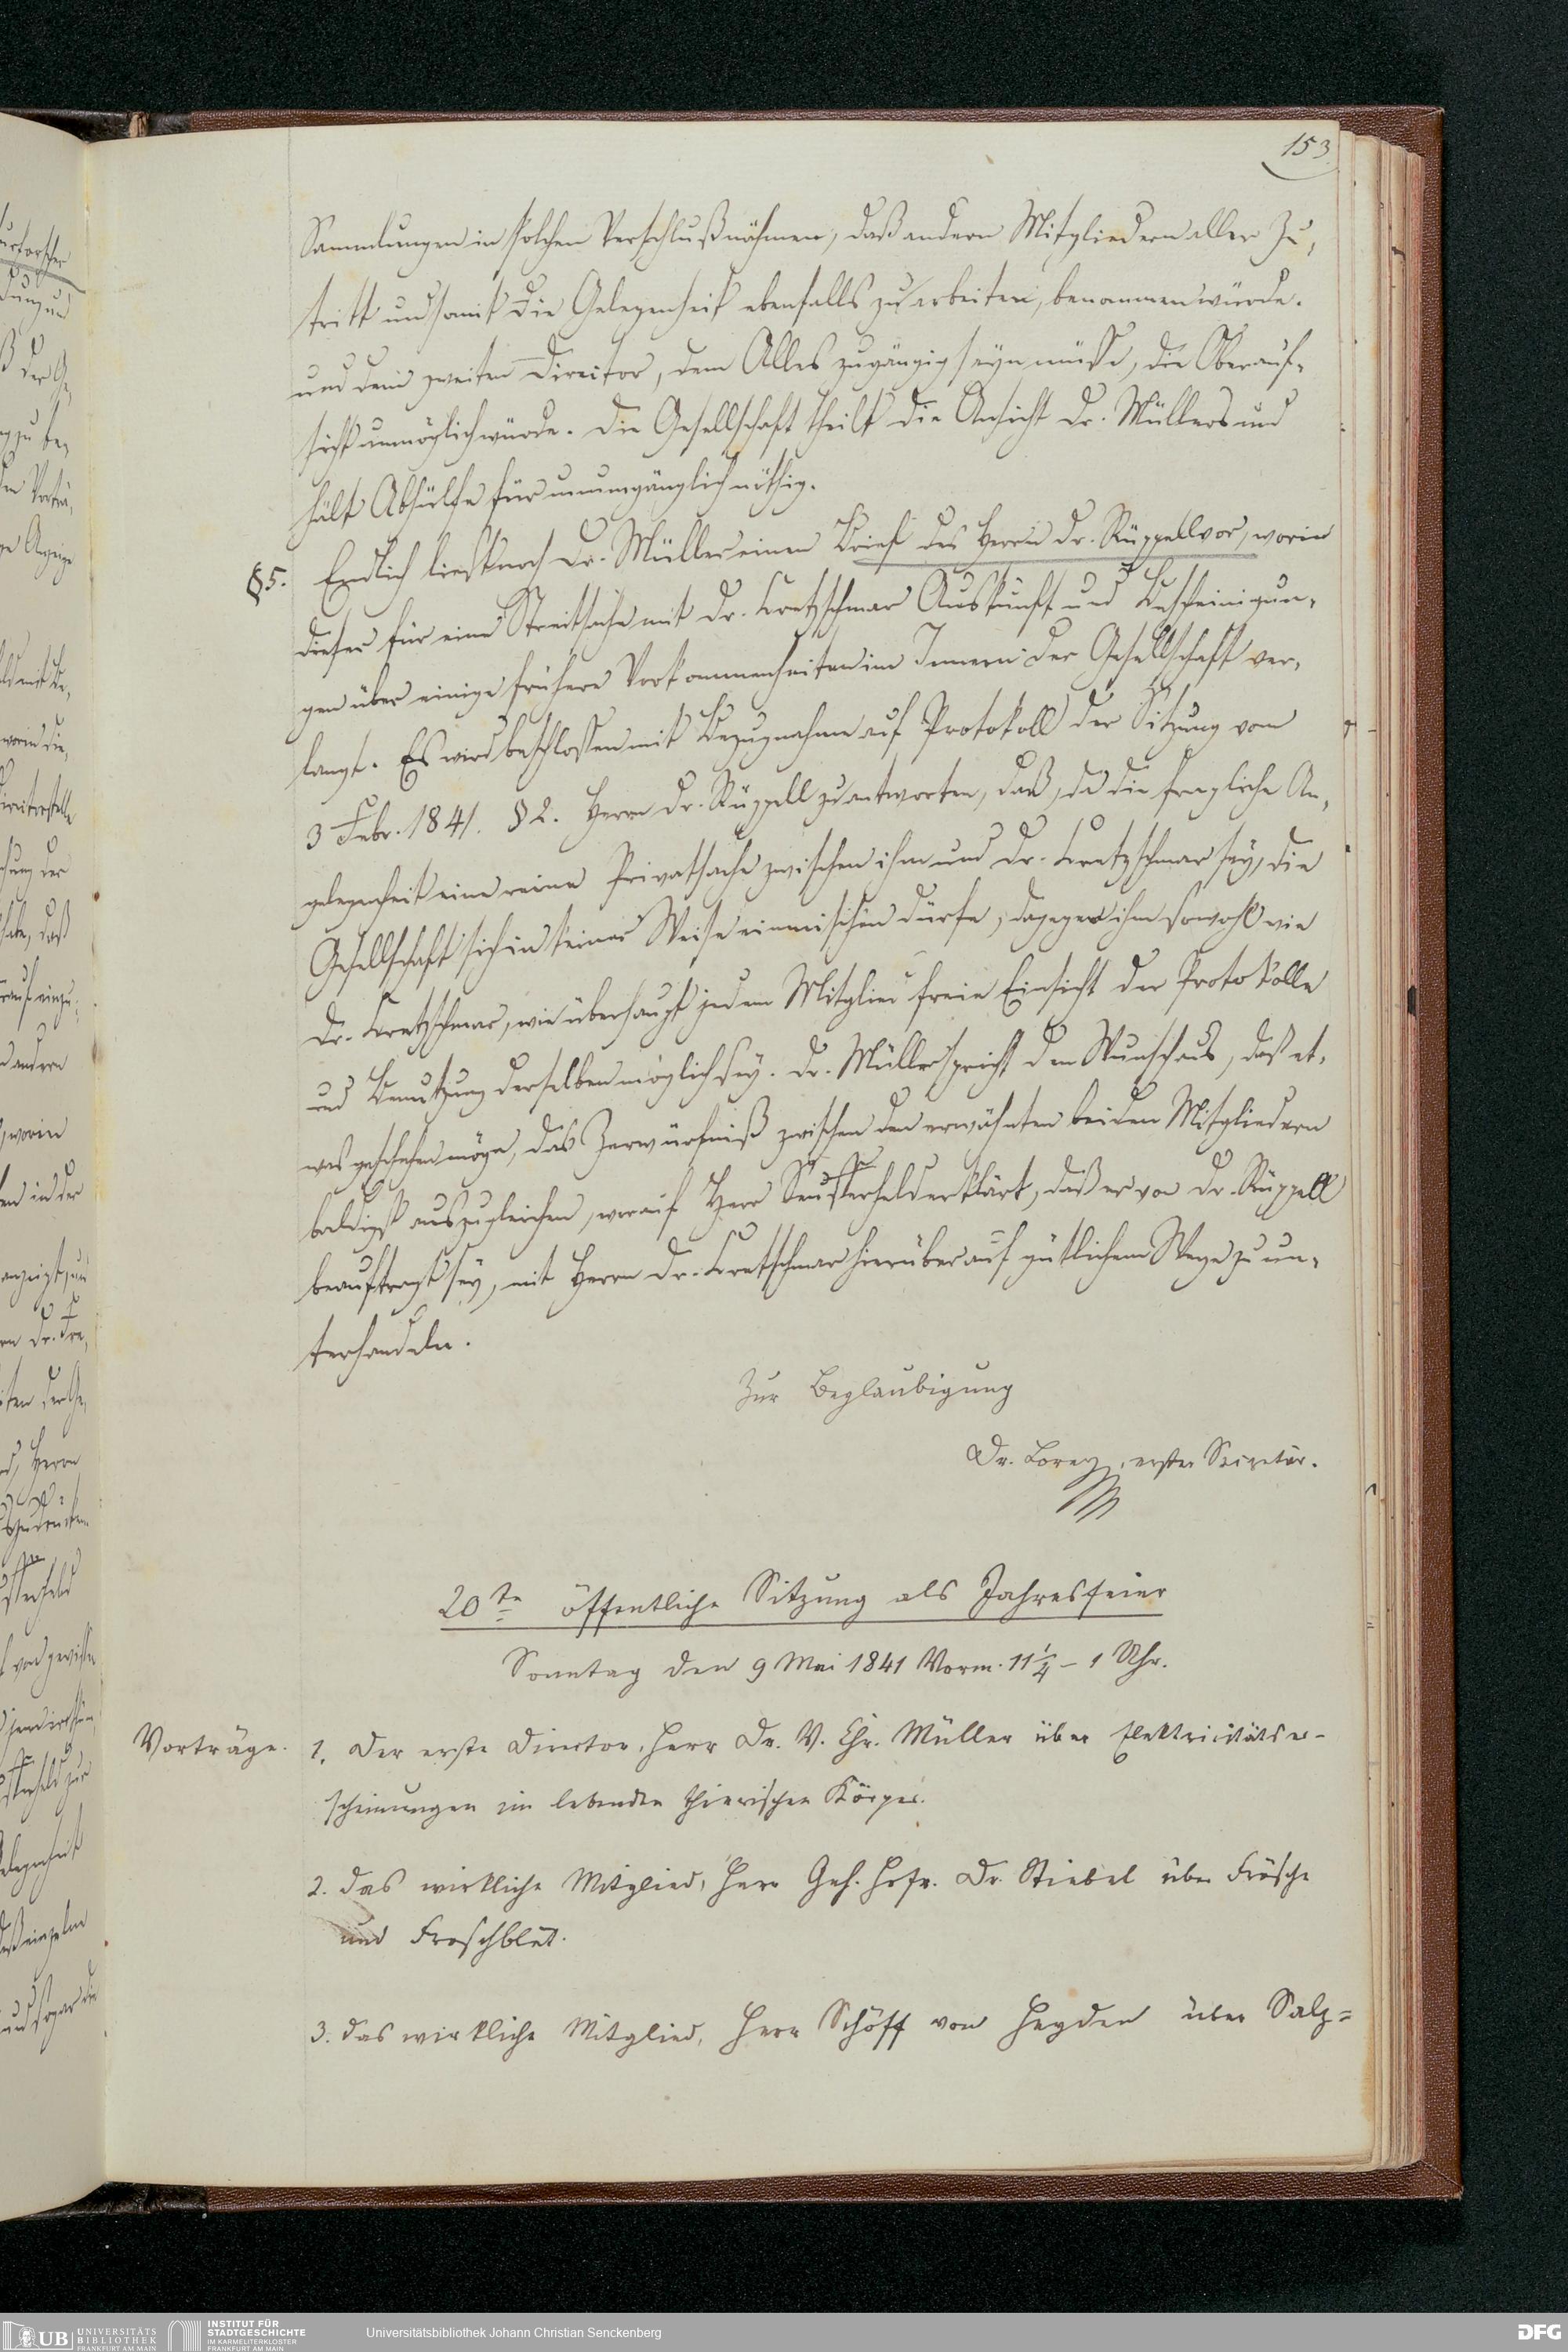 153
Sammlungen in solchen Verschluß nähmen, daß andern Mitgliedern aller Zu-
tritt und somit die Gelegenheit ebenfalls zu arbeiten, benommen würde.
und dem zweiten Director, dem Alles zugängig seyn müsse, die Oberauf-
sicht unmöglich würde. Die Gesellschaft theilt die Ansicht Dr. Müllers und
hält Abhülfe für unumgänglich nöthig.
§ 5. Endlich liest noch Dr. Müller einen Brief des Herrn Dr. Rüppell vor, worin
dieser für eine Streitsache mit Dr. Cretzschmar Auskunft und Bescheinigun-
gen über einige frühere Vorkommenheiten im Innern der Gesellschaft ver-
langt. Es wird beschlossen mit Bezugnahme auf Protokoll der Sitzung vom
3 Febr. 1841. § 2. Herrn Dr. Rüppell zu antworten, daß, da die fragliche An-
gelegenheit eine reine Privatsache zwischen ihm und Dr. Cretzschmar sey, die
Gesellschaft sich in keiner Weise einmischen dürfe, dagegen ihm sowohl wie
Dr. Cretzschmar, wie überhaupt jedem Mitglied freie Einsicht der Protokolle
und Benutzung derselben möglich sey. Dr. Müller spricht den Wunsch aus, daß et-
was geschehen möge, das Zerwürfniß zwischen den erwähnten beiden Mitgliedern
baldigst auszugleichen, worauf Herr Seufferheld erklärt, daß er von Dr. Rüppell
beauftragt sey, mit Herrn Dr. Cretzschmar hierüber auf gütlichem Wege zu un-
terhandeln.
Zur Beglaubigung
Dr. Lorey, erster Secretär.
20te öffentliche Sitzung als Jahresfeier
Sonntag den 9 Mai 1841 Vorm. 11 1/4 - 1 Uhr.
Vorträge. 1. Der erste Director, Herr Dr. V. Chr. Müller über Elektricitätser-
scheinungen im lebenden thierischen Körper.
2. das wirkliche Mitglied, Herr Geh. Hofr. Dr. Stiebel über Frösche
und Froschblut.
3. das wirkliche Mitglied, Herr Schöff von Heyden über Salz=
UB UNIVERSITÄTS
BIBLIOTHEK
FRANKFURT AM MAIN
INSTITUT FÜR
STADTGESCHICHTE
IM KARMELITERKLOSTER
FRANKFURT AM MAIN
Universitätsbibliothek Johann Christian Senckenberg
DFG